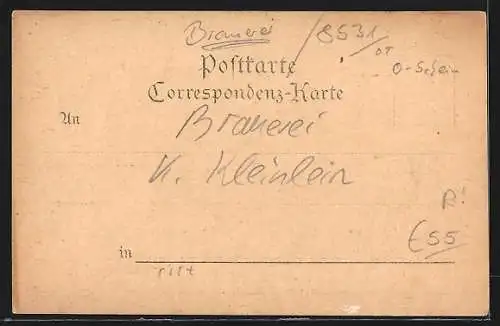 Brauerei /8531/OT
Postkarte
Correspondenz-Karte
An
Brauerei
K. Kleinlein
B!
€55
in